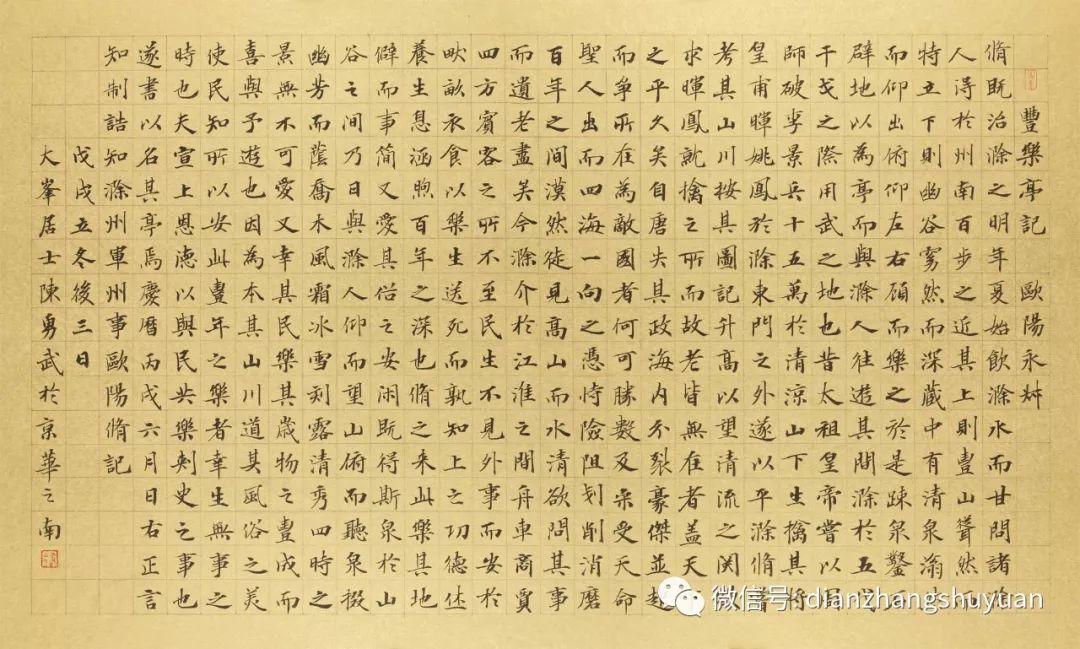 豐樂亭記 歐陽永叔
脩既治滁之明年夏始飲滁水而甘問諸滁
人得於州南百步之近其上則豐山聳然而
特立下則幽谷窈然而深藏中有清泉滃然
而仰出俯仰左右顧而樂之於是疏泉鑿石
辟地以為亭而與滁人往遊其間滁於五代
干戈之際用武之地也昔太祖皇帝嘗以周
師破李景兵十五萬於清涼山下生擒其將
皇甫暉姚鳳於滁東門之外遂以平滁脩嘗
考其山川按其圖記升高以望清流之関欲
求暉鳳就擒之所而故老皆無在者蓋天下
之平久矣自唐失其政海內分裂豪傑並起
而爭所在為敵國者何可勝數及宋受天命
聖人出而四海一向之憑恃險阻剗削消磨
百年之間漠然徒見高山而水清欲問其事
而遺老盡矣今滁介於江淮之間舟車商賈
四方賓客之所不至民生不見外事而安於
畎畝衣食以樂生送死而孰知上之功德休
養生息涵煦百年之深也脩之来此樂其地
僻而事簡又愛其俗之安閑既得斯泉於山
谷之間乃日與滁人仰而望山俯而聽泉掇
幽芳而蔭喬木風霜冰雪刻露清秀四時之
景無不可愛又幸其民樂其歲物之豐成而
喜與予遊也因為本其山川道其風俗之美
使民知所以安此豐年之樂者幸生無事之
時也夫宣上恩德以與民共樂刺史之事也
遂書以名其亭焉慶曆丙戌六月日右正言
知制誥知滁州軍州事歐陽脩記
戊戌立冬後三日
大峯居士陳勇武於京華之南
微信号:dianzhangshuyuan